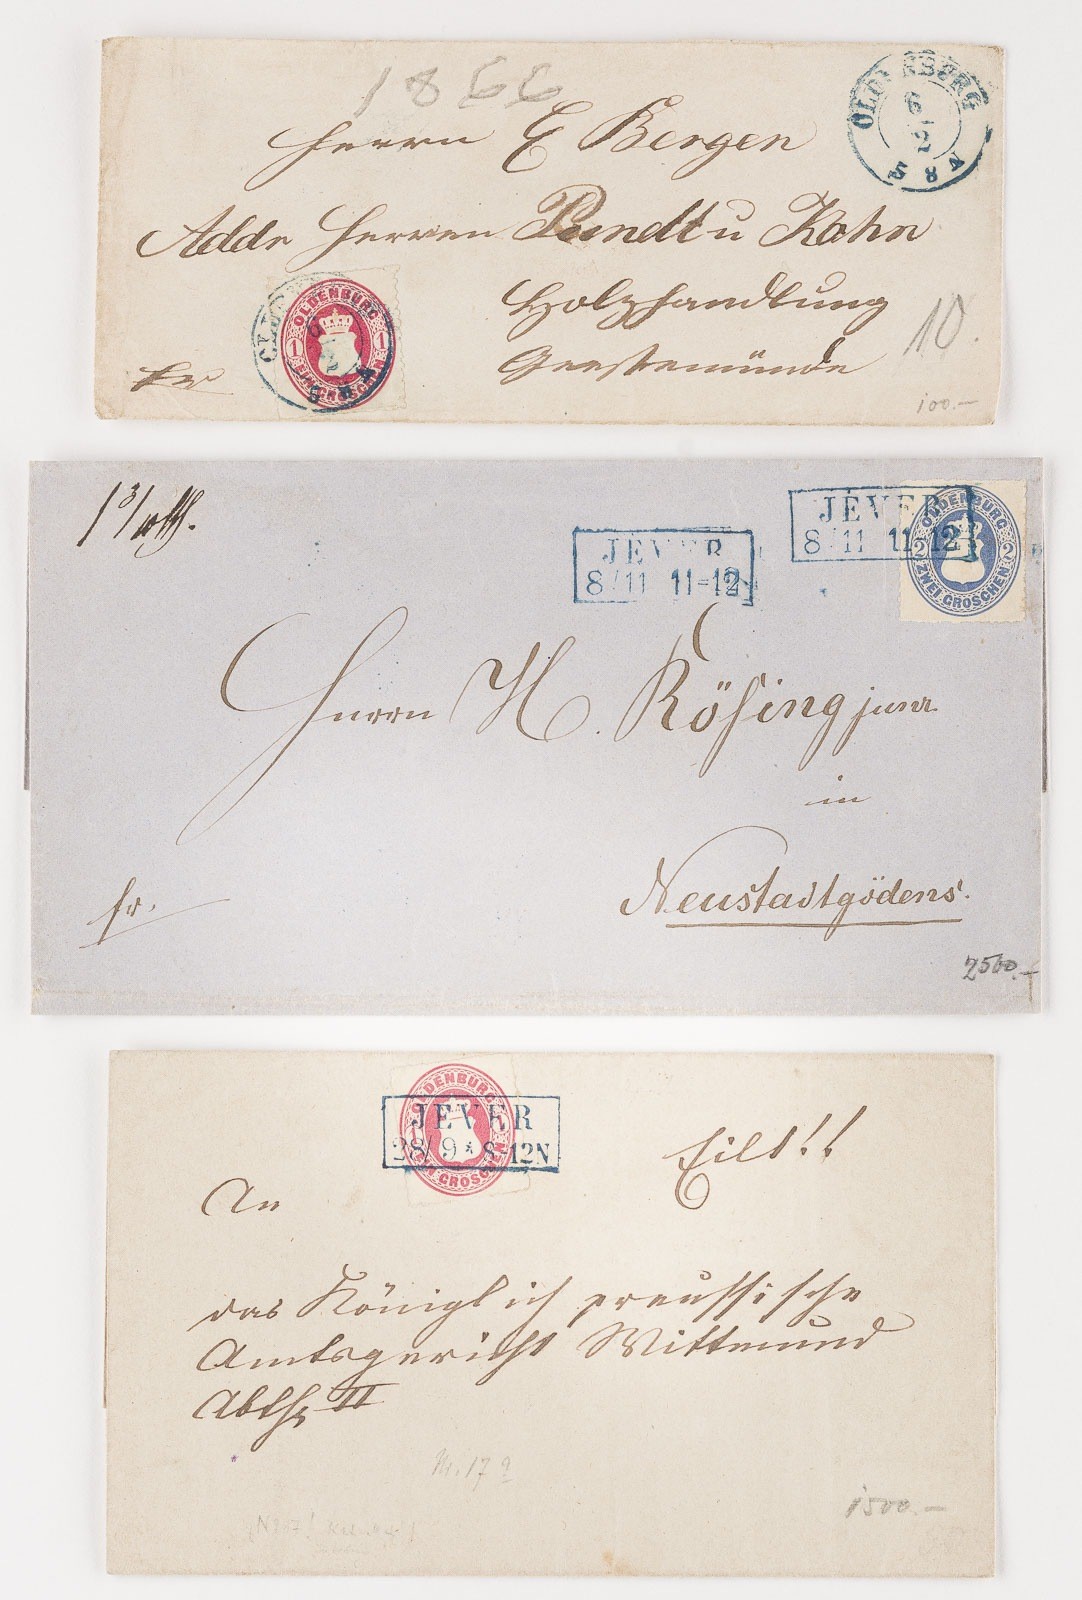 1866
OLDENBURG
6/2
5 8 A
Herrn E Bergen
Adde Herren Pundt u Kohn
Holzhandlung
Geestemünde
OLDENBURG
1 1
EIN GROSCHEN
10.
100.–
JEVER
8/11 11-12
JEVER
8/11 11-12
OLDENBURG
2 2
ZWEI GROSCHEN
Herrn H. Rösing junr.
in
Neustadtgödens.
fr.
2500.–
OLDENBURG
JEVER
28/9 * 8-12N
EIN GROSCHEN
Eilt!!
An
das Königlich preussische
Amtsgericht Wittmund
Abth II
Nr. 17 a
1500.–